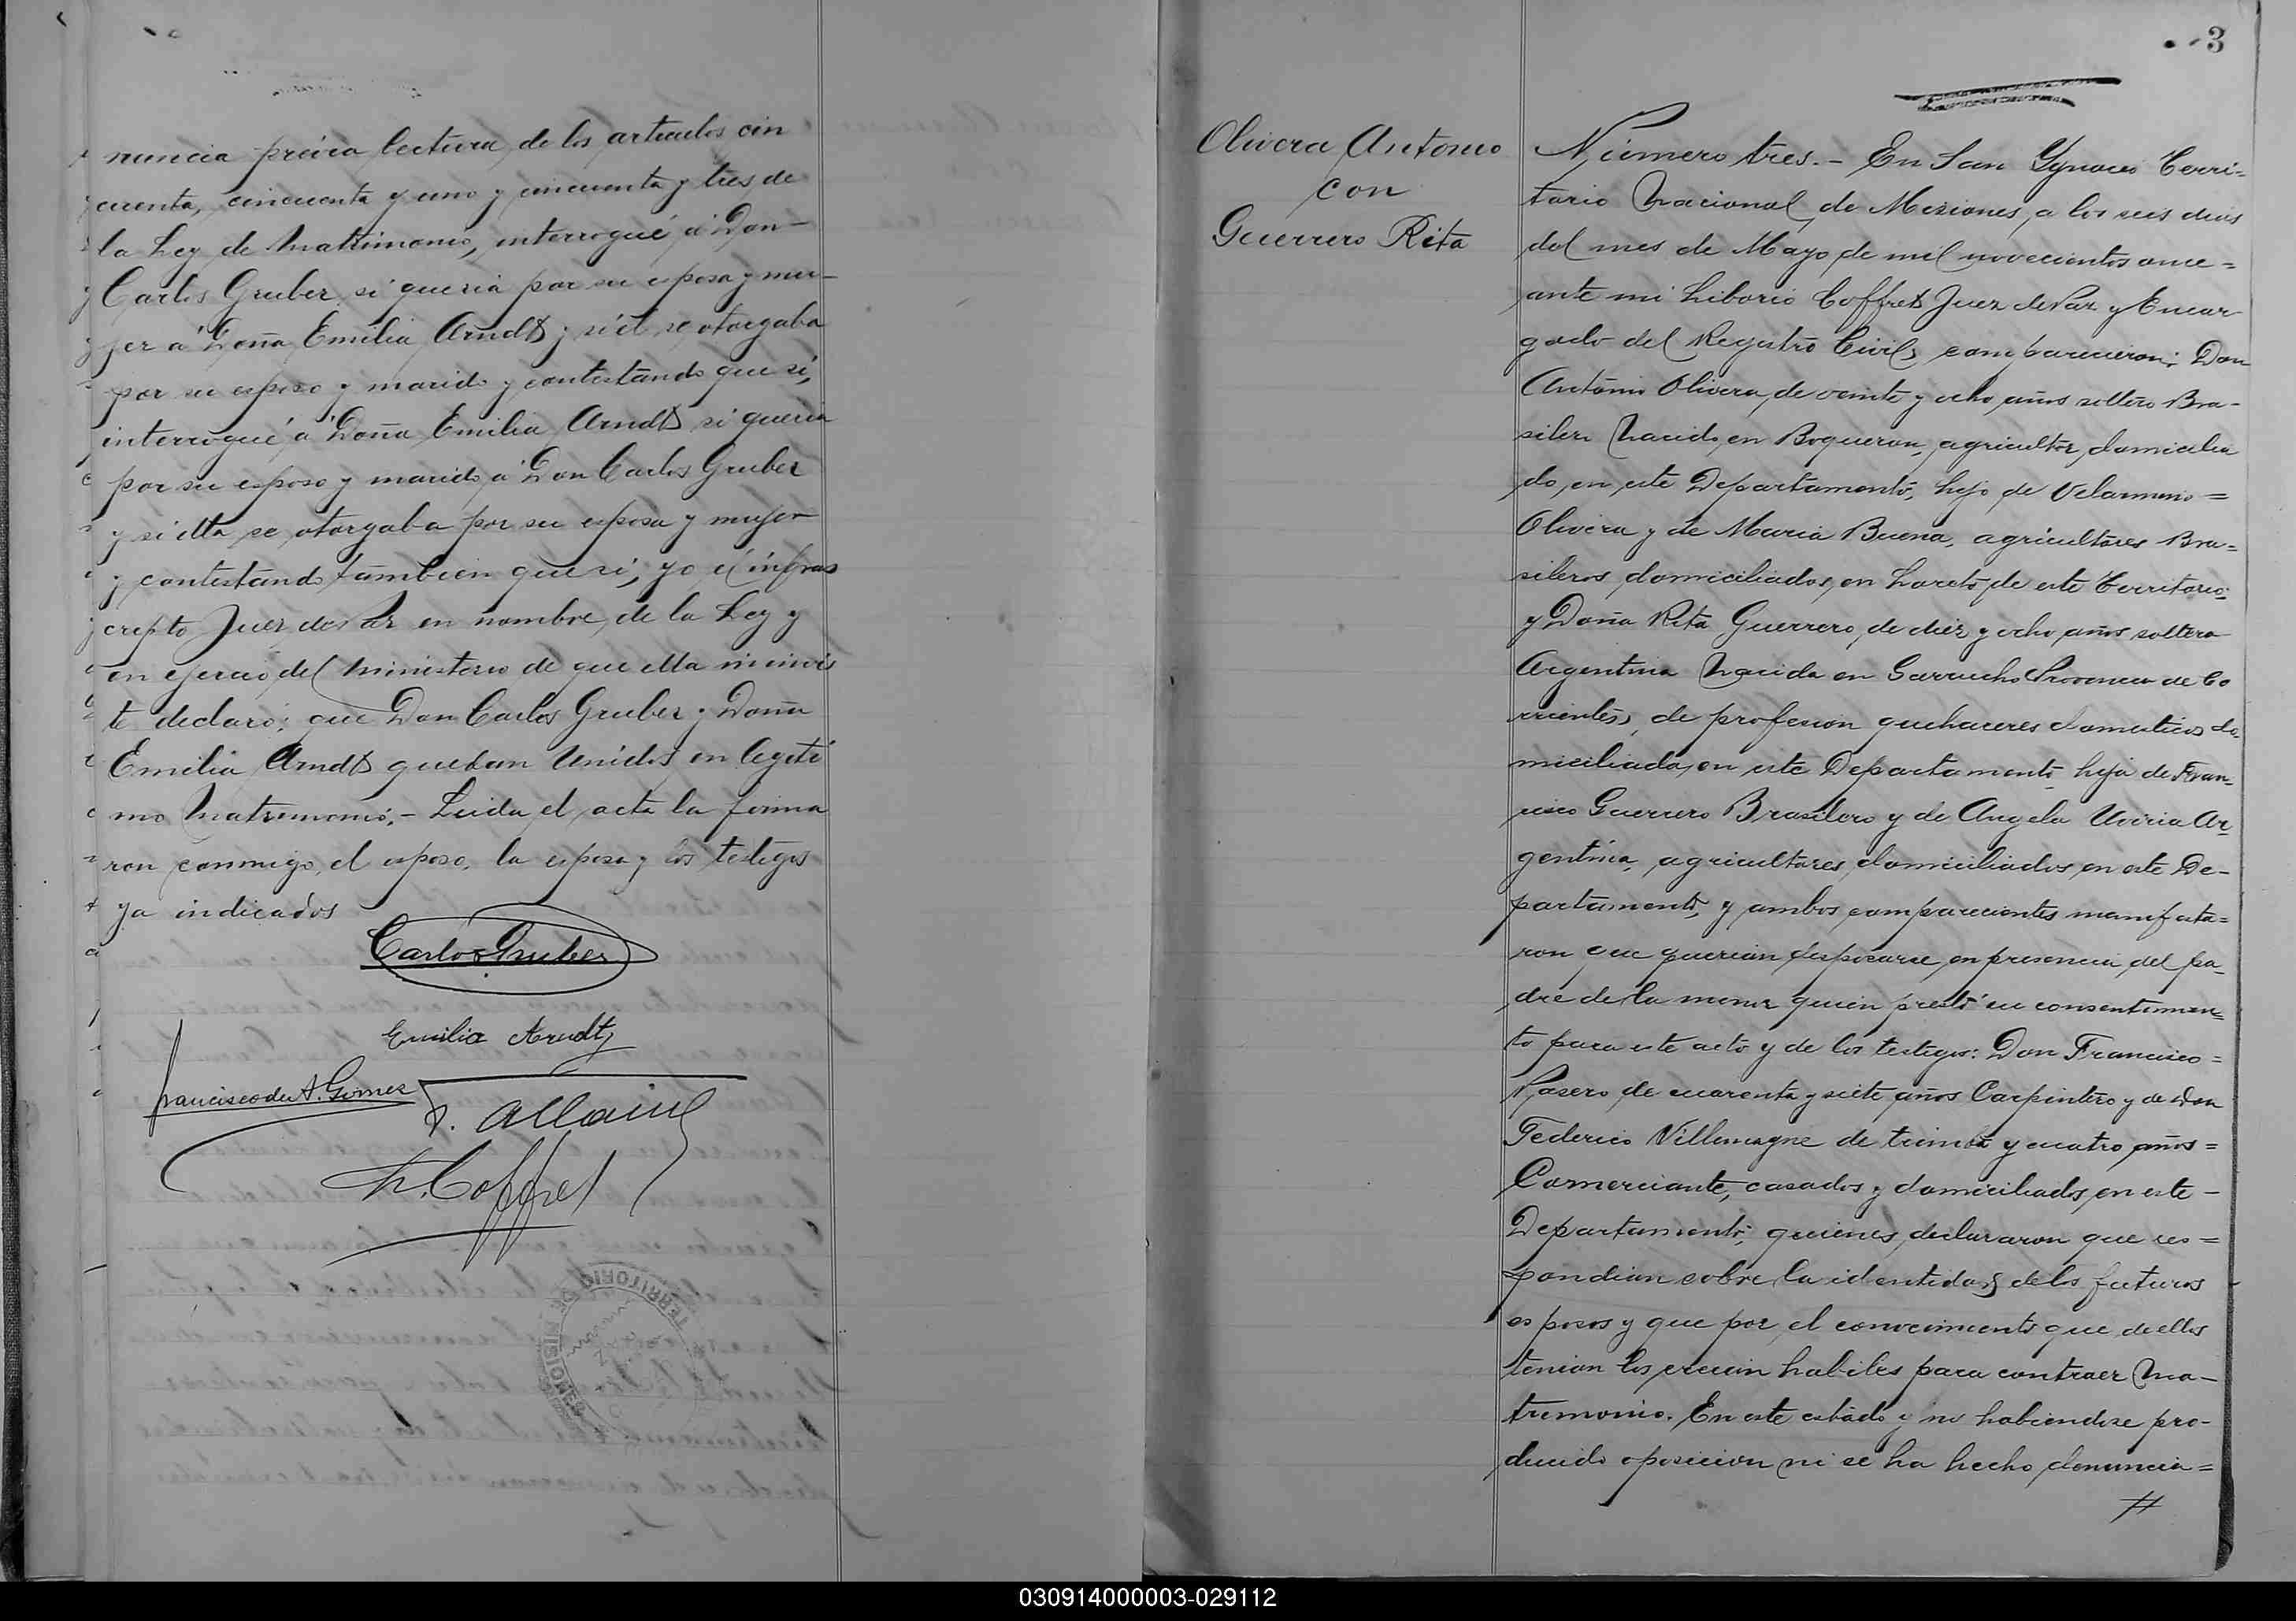 nuncia prévia lectura de los articulos cin
cuenta, cincuenta y uno y cincuenta y tres de
la Ley de Matrimonio, interrogué á Don-
Carlos Gruber si queria por su esposa y mu-
jer á Doña Emilia Arndt y si él se otorgaba
por su esposo y marido y contestando que sí,
interrogué á Doña Emilia Arndt si queria
por su esposo y marido á Don Carlos Gruber
y si ella se otorgaba por su esposa y mujer
y contestando tambien que si, yo el infras
cripto Juez de Paz en nombre de la Ley y
en ejercio del Ministerio de que ella me invis
te declaro: que Don Carlos Gruber y Doña
Emilia Arndt quedan Unidos en legiti
mo Matrimonio.- Leida el acta la firma
ron conmigo, el esposo, la esposa y los testigos
ya indicados
Carlos Gruber
Emilia Arndt
Francisco de A. Gomez
F. Allain
L. Coffret
TERRITORIO DE MISIONES
3
Olivera Antonio
con
Guerrero Rita
Número tres.- En San Ygnacio Terri=
torio Nacional de Misiones, a los seis dias
del mes de Mayo de mil novecientos once=
ante mi Liborio Coffret Juez de Paz y Encar
gado del Registro Civil, comparecieron: Don
Antonio Olivera, de veinte y ocho años soltero Bra-
silero Nacido en Boqueron, agricultor, domicilia
do, en este Departamento, hijo de Velarmino=
Olivera y de Maria Buena, agricultores Bra=
sileros, domiciliados, en Loreto de este Territorio:
y Doña Rita Guerrero, de diez y ocho años soltera
Argentina Nacida en Garruchos Provincia de Co
rrientes, de profesion quehaceres domesticos do-
miciliada, en este Departamento, hija de Fran-
cisco Guerrero Brasilero y de Angela Ar
gentina, agricultores, domiciliados en este De-
partamento, y ambos, comparecientes manifesta=
ron que querian desposarse, en presencia del pa-
dre de la menor quien prestó su consentimien=
to para este acto y de los testigos: Don Francisco=
Rasero, de cuarenta y siete años Carpintero y de Don
Federico Villemagne de treinta y cuatro años=
Comerciante, casados y domiciliados, en este-
Departamento, quienes, declararon que res=
pondian sobre la identidad de los futuros
esposos y que por el conocimiento que de ellos
tenian los creian habiles para contraer Ma-
trimonio. En este estado y no habiendose pro-
ducido oposicion ni se ha hecho denuncia=
//
030914000003-029112